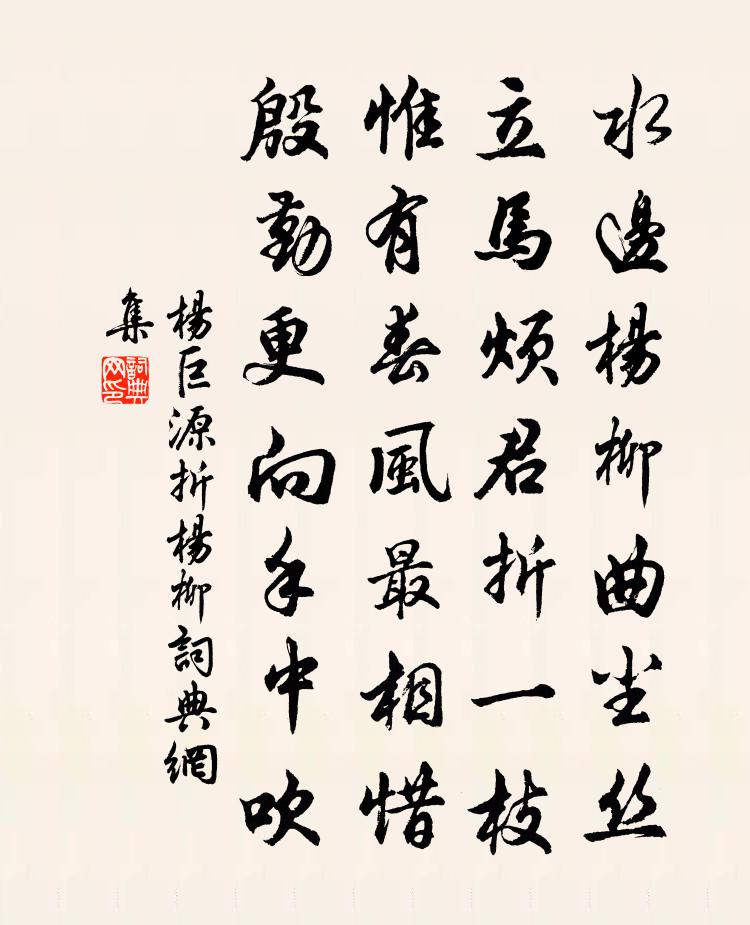 水邊楊柳曲尘丝
立馬煩君折一枝
惟有春風最相惜
殷勤更向手中吹
楊巨源折楊柳詞典網
集
詞典
网印